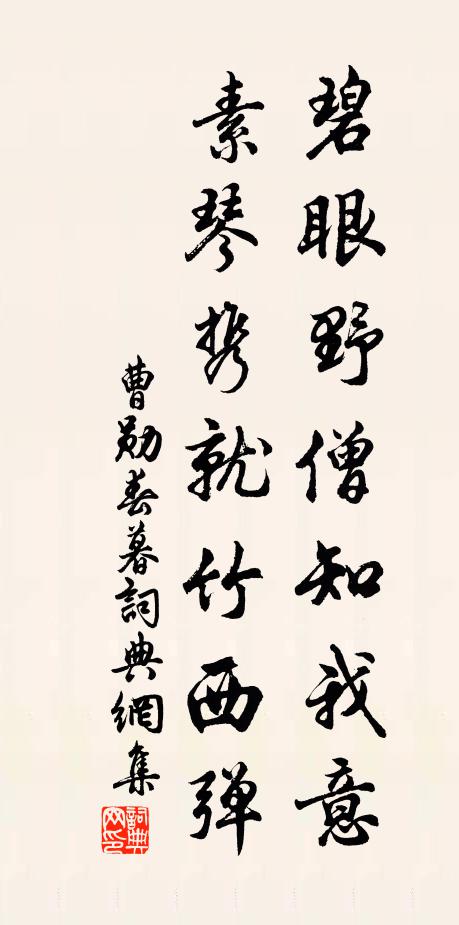 碧眼野僧知我意
素琴携就竹西弹
曹勋春暮詞典網集
詞典网印